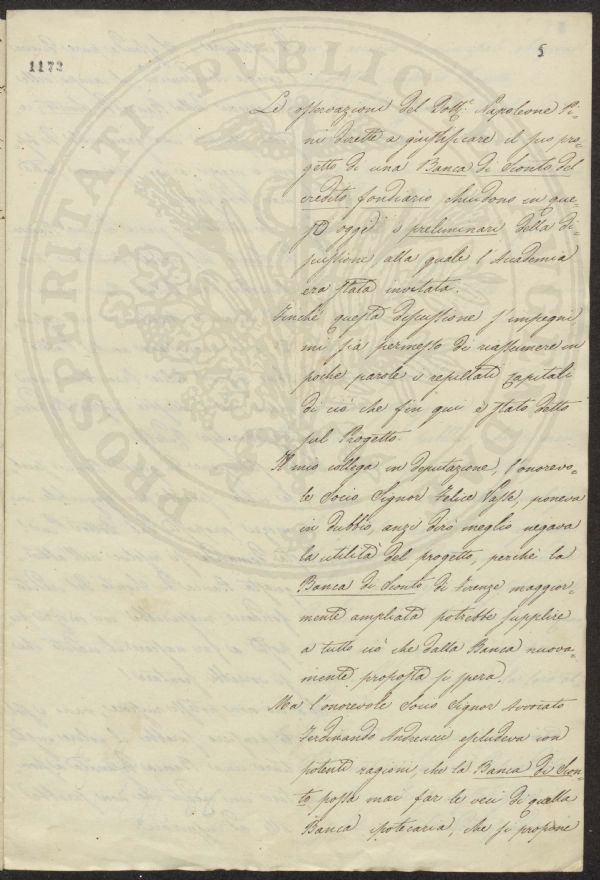 5
1172
Le osservazioni del Dott.e Napoleone Pi-
ni dirette a giustificare il suo pro-
getto di una Banca di Sconto del
credito fondiario chiudono in que-
sto oggi i preluminari della di-
scussione alla quale l'Accademia
era stata invitata.
Finché questa discussione s'impegni
mi sia permesso di riassumere in
poche parole i resultati capitali
di ciò che fin qui è stato detto
sul Progetto.
Il mio collega in deputazione, l'onorevo-
le Socio Signor Felice Vasse, poneva
in dubbio, anzi dirò meglio negava
la utilità del progetto, perché la
Banca di Sconto di Firenze maggior-
mente ampliata potrebbe supplire
a tutto ciò che dalla Banca nuova-
mente proposta si spera.
Ma l'onorevole Socio Signor Avvocato
Ferdinando Andreucci escludeva con
potenti ragioni, che la Banca di Scon-
to possa mai far le veci di quella
Banca ipotecaria, che si propone
PROSPERITATI PUBLICAE